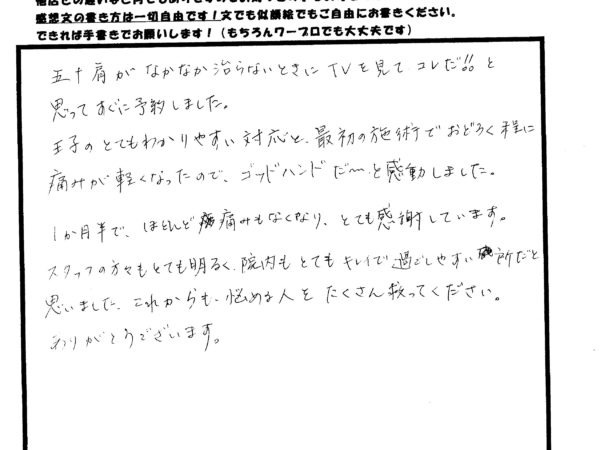 感想文の書き方は一切自由です！文でも似顔絵でもご自由にお書きください。
できれば手書きでお願いします！（もちろんワープロでも大丈夫です）
五十肩がなかなか治らないときにTVを見てコレだ!!と
思ってすぐに予約しました。
王子のとてもわかりやすい対応と、最初の施術でおどろく程に
痛みが軽くなったので、ゴッドハンドだ〜と感動しました。
1か月半で、ほとんど痛みもなくなり、とても感謝しています。
スタッフの方々もとても明るく、院内もとてもキレイで過ごしやすい所だと
思いました。これからも、悩める人をたくさん救ってください。
ありがとうございます。